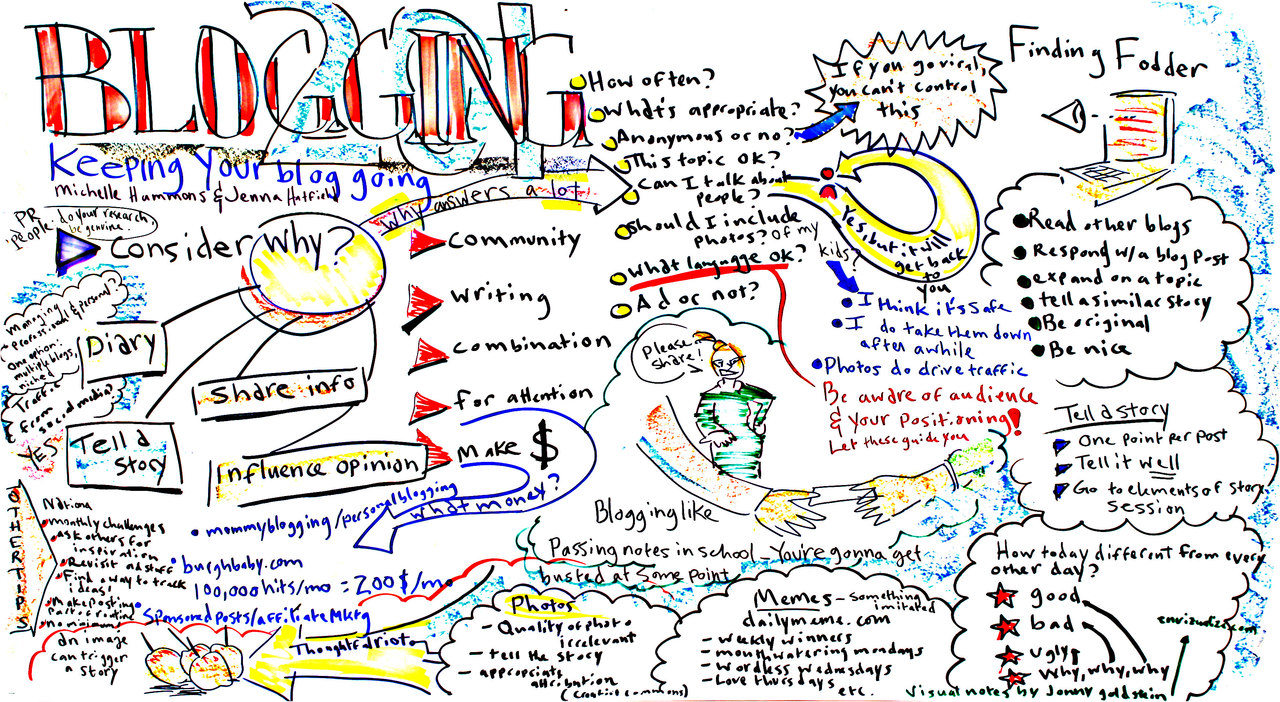 BLOGGING
201
Keeping Your blog going
Michelle Hammons & Jenna Hatfield
PR people: do your research,
be genuine.
Consider Why?
Why answers a lot
How often?
What's appropriate?
Anonymous or no?
This topic ok?
Can I talk about
people?
Should I include
photos? Of my
kids?
What langugge ok?
Ad or not?
If you go viral,
you can't control
this
Yes, but it will
get back
to
you
I think it's safe
I do take them down
after awhile
Photos do drive traffic
Be aware of audience
& your positioning!
Let these guide you
Finding Fodder
Read other blogs
Respond w/a blog Post
expand on a topic
tell a similar story
Be original
Be nice
Tell a story
One point per post
Tell it well
Go to elements of story
session
How today different from every
other day?
good
bad
ugly
Why, why, why
envizualize.com
Visual notes by Jonny goldstein
Community
Writing
Combination
for attention
Make $
what money?
Managing
Professional & personal?
One option:
multiple blogs,
niched
Traffic
from
social media?
YES
Diary
Share info
Tell a
story
Influence opinion
mommyblogging/personal blogging
burghbaby.com
100,000 hits/mo = 200$/mo
Sponsored posts/affiliate Mktg
OTHER TIPS
monthly challenges
ask others for
inspiration
Revisit old stuff
Find a way to track
ideas!
Make posting
Part of routine
no minimum
An image
can trigger
a story
Please
share!
Blogging like
Passing notes in school - You're gonna get
busted at some point
Photos
- Quality of photo
irrelevant
- tell the story
- appropriate
attribution
(creative commons)
Memes - something
imitated
dailymeme.com
- weekly winners
- mouthwatering mondays
- wordless wednesdays
- Love thursdays
etc.